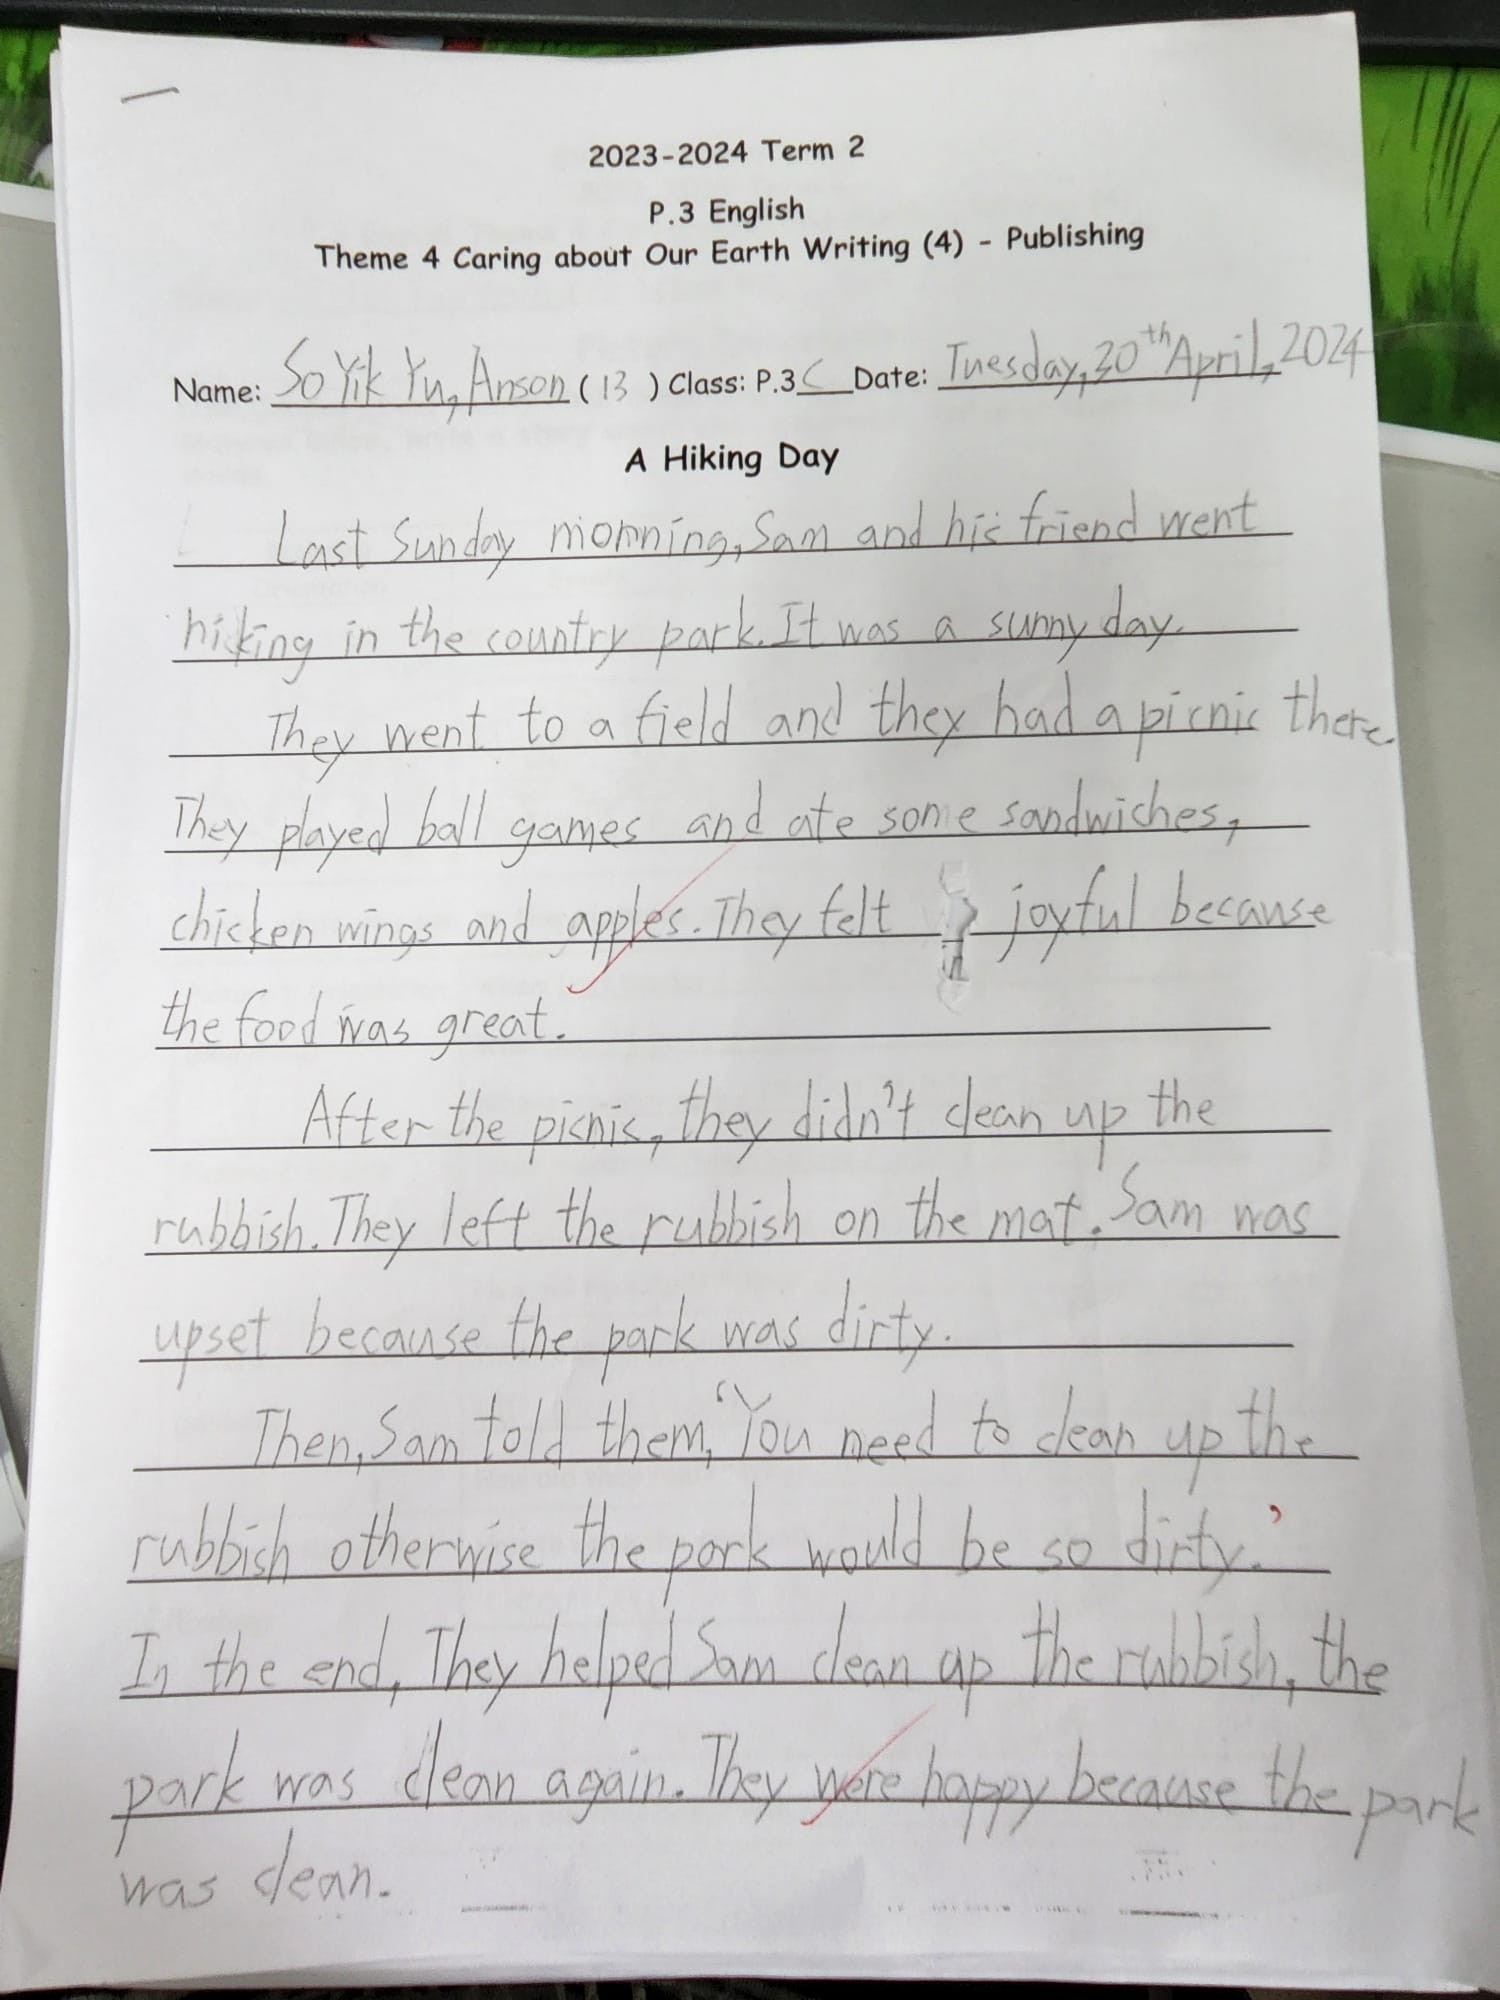 2023-2024 Term 2
P.3 English
Theme 4 Caring about Our Earth Writing (4) - Publishing
Name: So Yik Yu, Anson (13) Class: P.3C Date: Tuesday, 30th April, 2024
A Hiking Day
Last Sunday morning, Sam and his friend went
hiking in the country park. It was a sunny day.
They went to a field and they had a picnic there.
They played ball games and ate some sandwiches,
chicken wings and apples. They felt joyful because
the food was great.
After the picnic, they didn't clean up the
rubbish. They left the rubbish on the mat. Sam was
upset because the park was dirty.
Then, Sam told them, 'You need to clean up the
rubbish otherwise the park would be so dirty.'
In the end, They helped Sam clean up the rubbish, the
park was clean again. They were happy because the park
was clean.